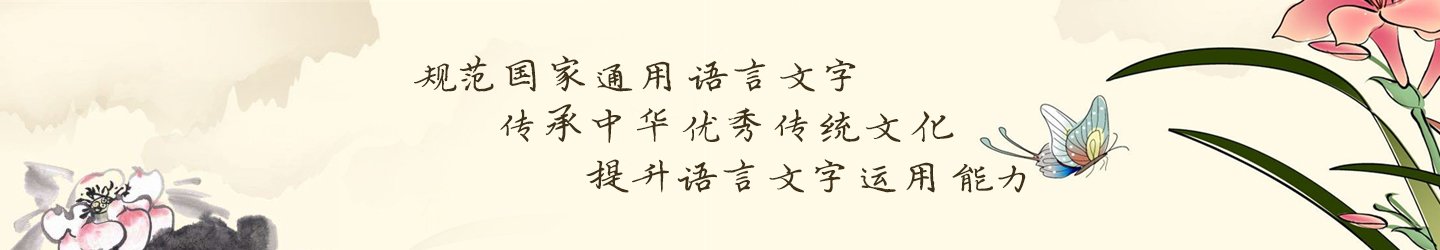 规范国家通用语言文字
传承中华优秀传统文化
提升语言文字运用能力